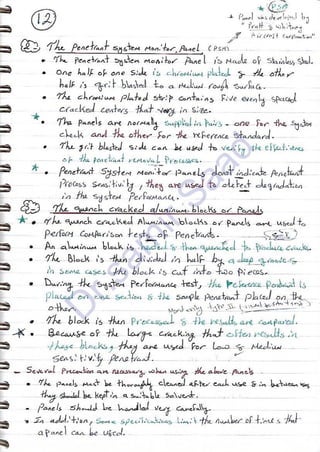 12
PSM
* Panel was developed by
" Pratt & whitney
Aircraft corporation"
The Penetrant System Monitor Panel (PSM)
• The Penetrant System monitor Panel is Made of Stainless Steel.
• One half of one side is chromium plated & the other
half is grit blasted to a medium rough surface.
• The chromium plated strip contains Five evenly spaced
cracked centers that vary in Size.
• The Panels are normally supplied in Pairs - one For the System
check and the other for the reference standard.
• The grit blasted side can be used to verify the effectiveness
of the Penetrant removal Processes.
• Penetrant System Monitor Panels donot indicate Penetrant
Process Sensitivity, they are used to detect degradation
in the System Performance.
The quench cracked aluminum blocks or Panels
• The quench cracked Aluminum blocks or Panels are used to
perform Comparison tests of Penetrants.
• An aluminum block is heated & then quenched to Produce cracks.
• The Block is then divided in half by a deep groove &
in some cases the block is cut into two Pieces.
• During the System Performance test, the reference Penetrant is
Placed on one section & the sample Penetrant placed on the
other.
• The block is then Processed & the results are compared.
• Because of the large cracking that often results in
these blocks, they are used for Low & Medium
Sensitivity Penetrant.
- Several Precaution are necessary when using the above Panels
• The panels Must be thoroughly cleaned after each use & in between uses
they should be kept in a suitable Solvent.
- Panels should be handled very carefully.
• In addition, Some specifications Limit the number of times that
a panel can be used.